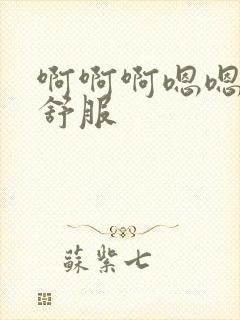 啊啊啊嗯嗯
舒服
蘇紫七